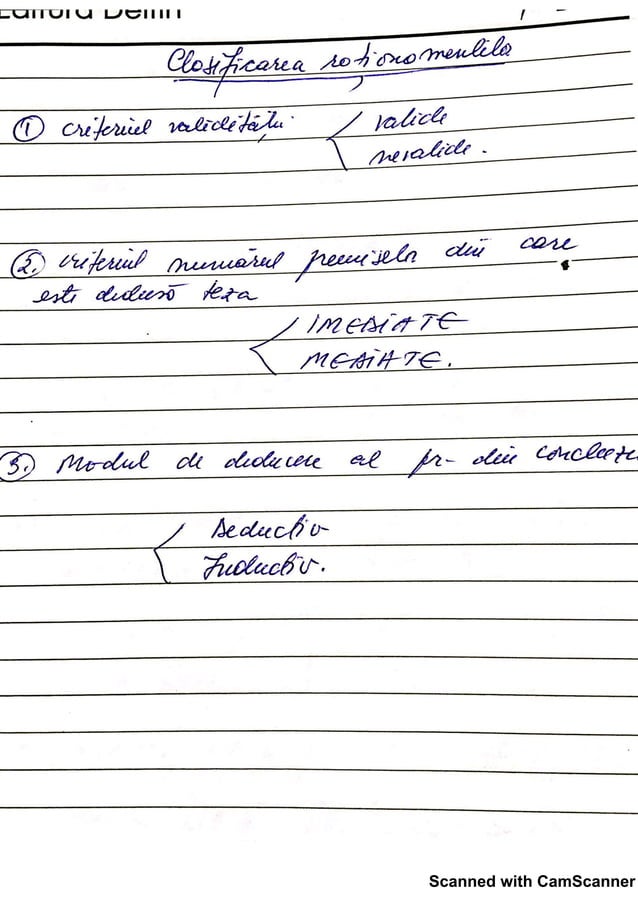 Editura Delfin
Clasificarea raționamentelor
① criteriul validității
valide
nevalide.
②. criteriul numărul premiselor din care
este dedusă teza
IMEDIATE
MEDIATE.
③. Modul de deducere al pr- din concluzie
Deductiv
Inductiv.
Scanned with CamScanner